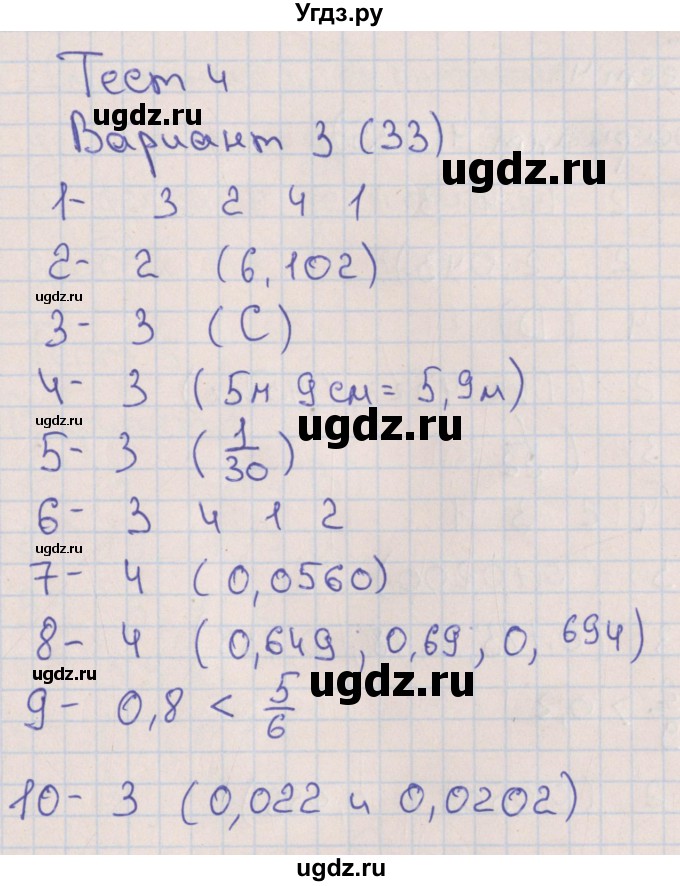 Угдз.ру
Тест 4
ugdz.ru
Вариант 3 (33)
ugdz.ru
1- 3 2 4 1
2- 2 (6,102)
ugdz.ru
3- 3 (С)
4- 3 (5м 9см = 5,9м)
ugdz.ru
ugdz.ru
5- 3 (1/30)
6- 3 4 1 2
ugdz.ru
7- 4 (0,0560)
8- 4 (0,649, 0,69, 0, 694)
ugdz.ru
ugdz.ru
9- 0,8 < 5/6
10- 3 (0,022 и 0,0202)
ugdz.ru